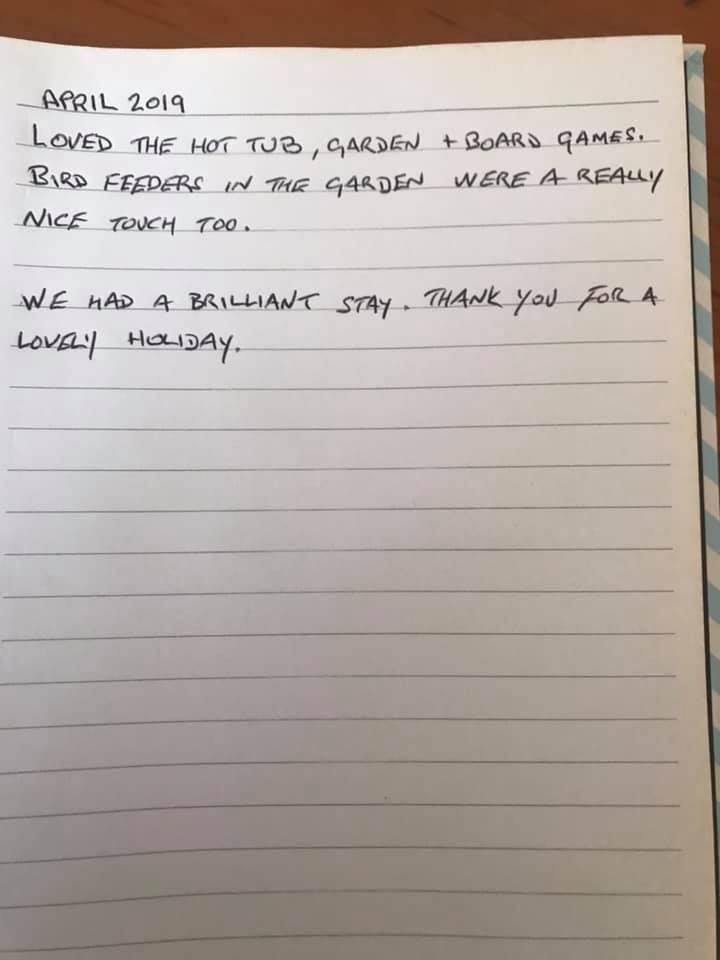 APRIL 2019
LOVED THE HOT TUB, GARDEN + BOARD GAMES.
BIRD FEEDERS IN THE GARDEN WERE A REALLY
NICE TOUCH TOO.
WE HAD A BRILLIANT STAY. THANK YOU FOR A
LOVELY HOLIDAY.